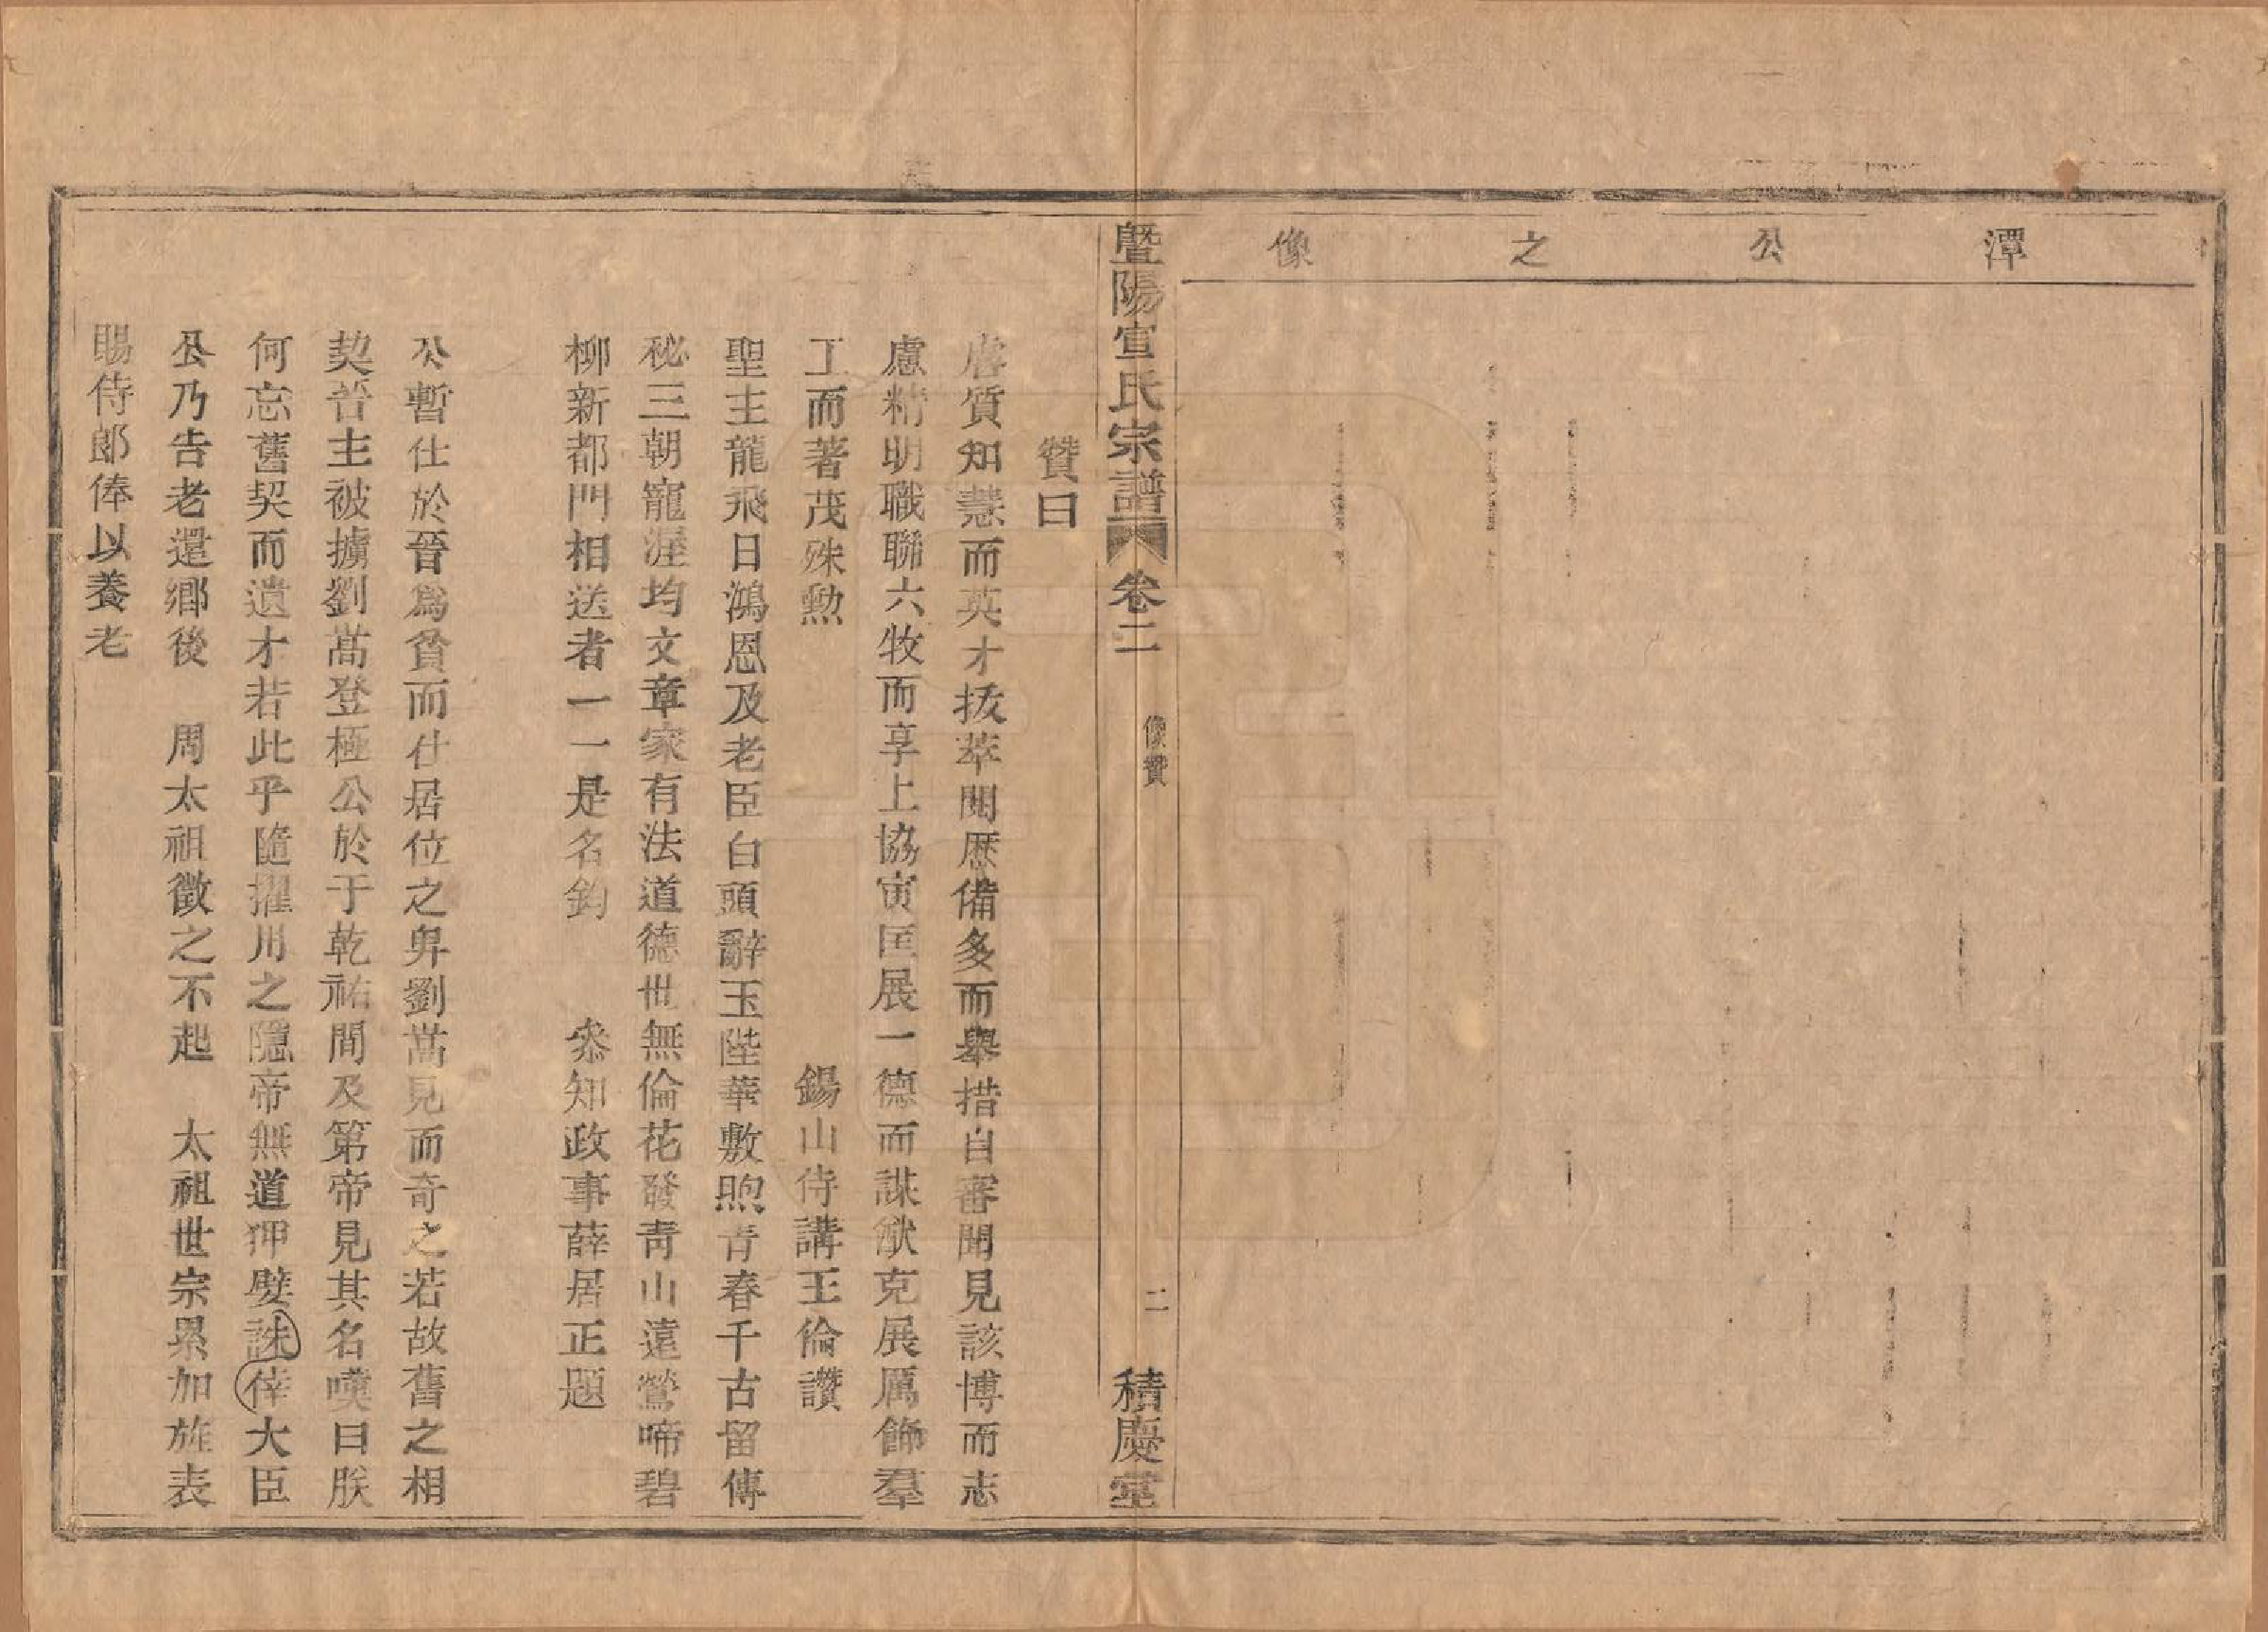 潭公之像
暨陽宣氏宗譜 卷二 像贊 二 積慶堂
贊曰
睿質知慧而英才拔萃閱歷備多而舉措自審聞見該博而志
慮精明職聯六牧而享上協寅匡展一德而謀猷克展厲飾羣
工而著茂殊勲 錫山侍講王倫讚
聖主龍飛日鴻恩及老臣白頭辭玉陛華敷煦青春千古留傳
秘三朝寵渥均文章家有法道德世無倫花發靑山遠鶯啼碧
柳新都門相送者一一是名鈞 叅知政事薛居正題
公暫仕於晉爲貧而仕居位之卑劉暠見而奇之若故舊之相
契晉主被擄劉暠登極公於于乾祐間及第帝見其名嘆曰朕
何忘舊契而遺才若此乎隨擢用之隱帝無道狎嬖誅倖大臣
公乃告老還鄉後 周太祖徵之不起 太祖世宗累加旌表
賜侍郞俸以養老